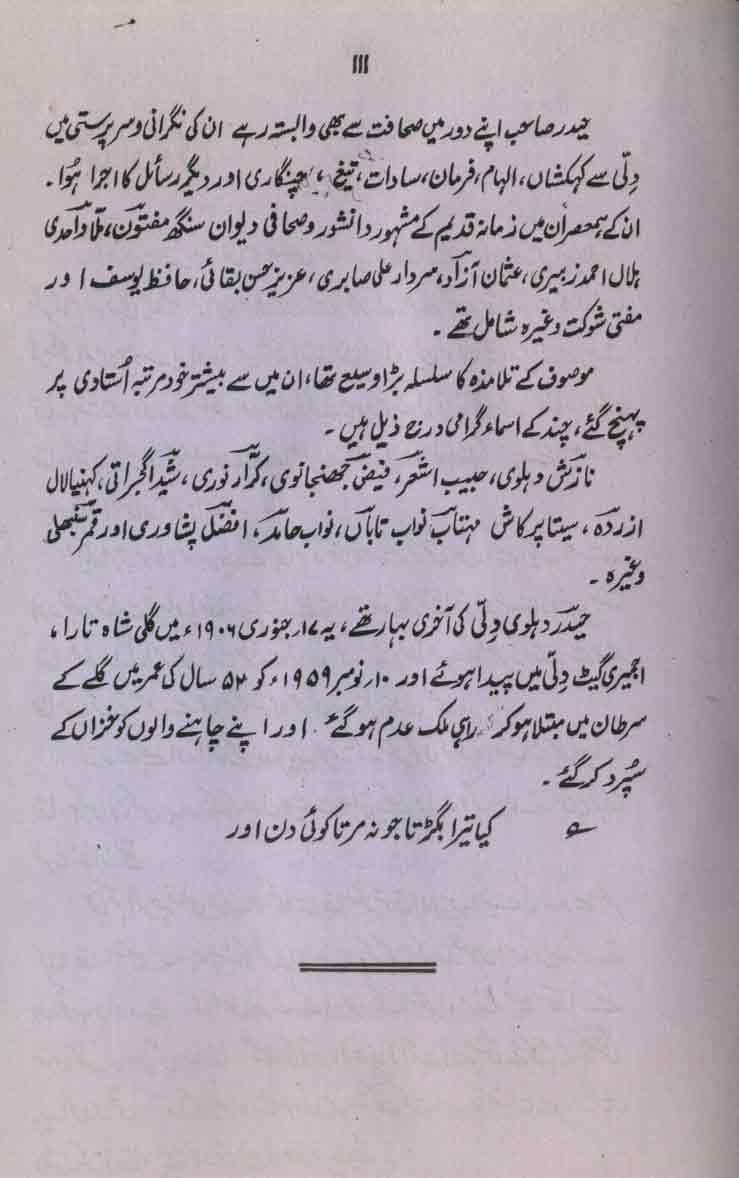 ۱۱۱
حیدر صاحب اپنے دور میں صحافت سے بھی وابستہ رہے ان کی نگرانی و سرپرستی میں
دِلّی سے کہکشاں، الہام، فرمان، سادات، تیغ، چنگاری اور دیگر رسائل کا اجرا ہُوا۔
ان کے ہمعصران میں زمانہ قدیم کے مشہور دانشور و صحافی دیوان سنگھ مفتون، ملّا واحدی
ہلال احمد زبیری، عثمان آزاد، سردار علی صابری، عزیز حسن بقائی، حافظ یوسف اور
مفتی شوکت وغیرہ شامل تھے۔
موصوف کے تلامذہ کا سلسلہ بڑا وسیع تھا، ان میں سے بیشتر خود مرتبہ اُستادی پر
پہنچ گئے، چند کے اسماء گرامی درج ذیل ہیں۔
نازش دہلوی، حبیب اشعر، فیض جھنجانوی، کرّار نوری، شیدا گجراتی، کنہیا لال
ازردہ، سیتا پرکاش مہتاب نواب تاباں، نواب حامد، افضل پشاوری اور قمر سنبھلی
وغیرہ۔
حیدر دہلوی دِلّی کی آخری بہار تھے، یہ ۱۷ر جنوری ۱۹۰۶ء میں گلی شاہ تارا،
اجمیری گیٹ دِلّی میں پیدا ہوئے اور ۱۰ر نومبر ۱۹۵۹ء کو ۵۲ سال کی عمر میں گلے کے
سرطان میں مبتلا ہو کر راہی ملک عدم ہو گئے اور اپنے چاہنے والوں کو خزاں کے
سُپرد کر گئے۔
؎ کیا تیرا بگڑتا جو نہ مرتا کوئی دن اور